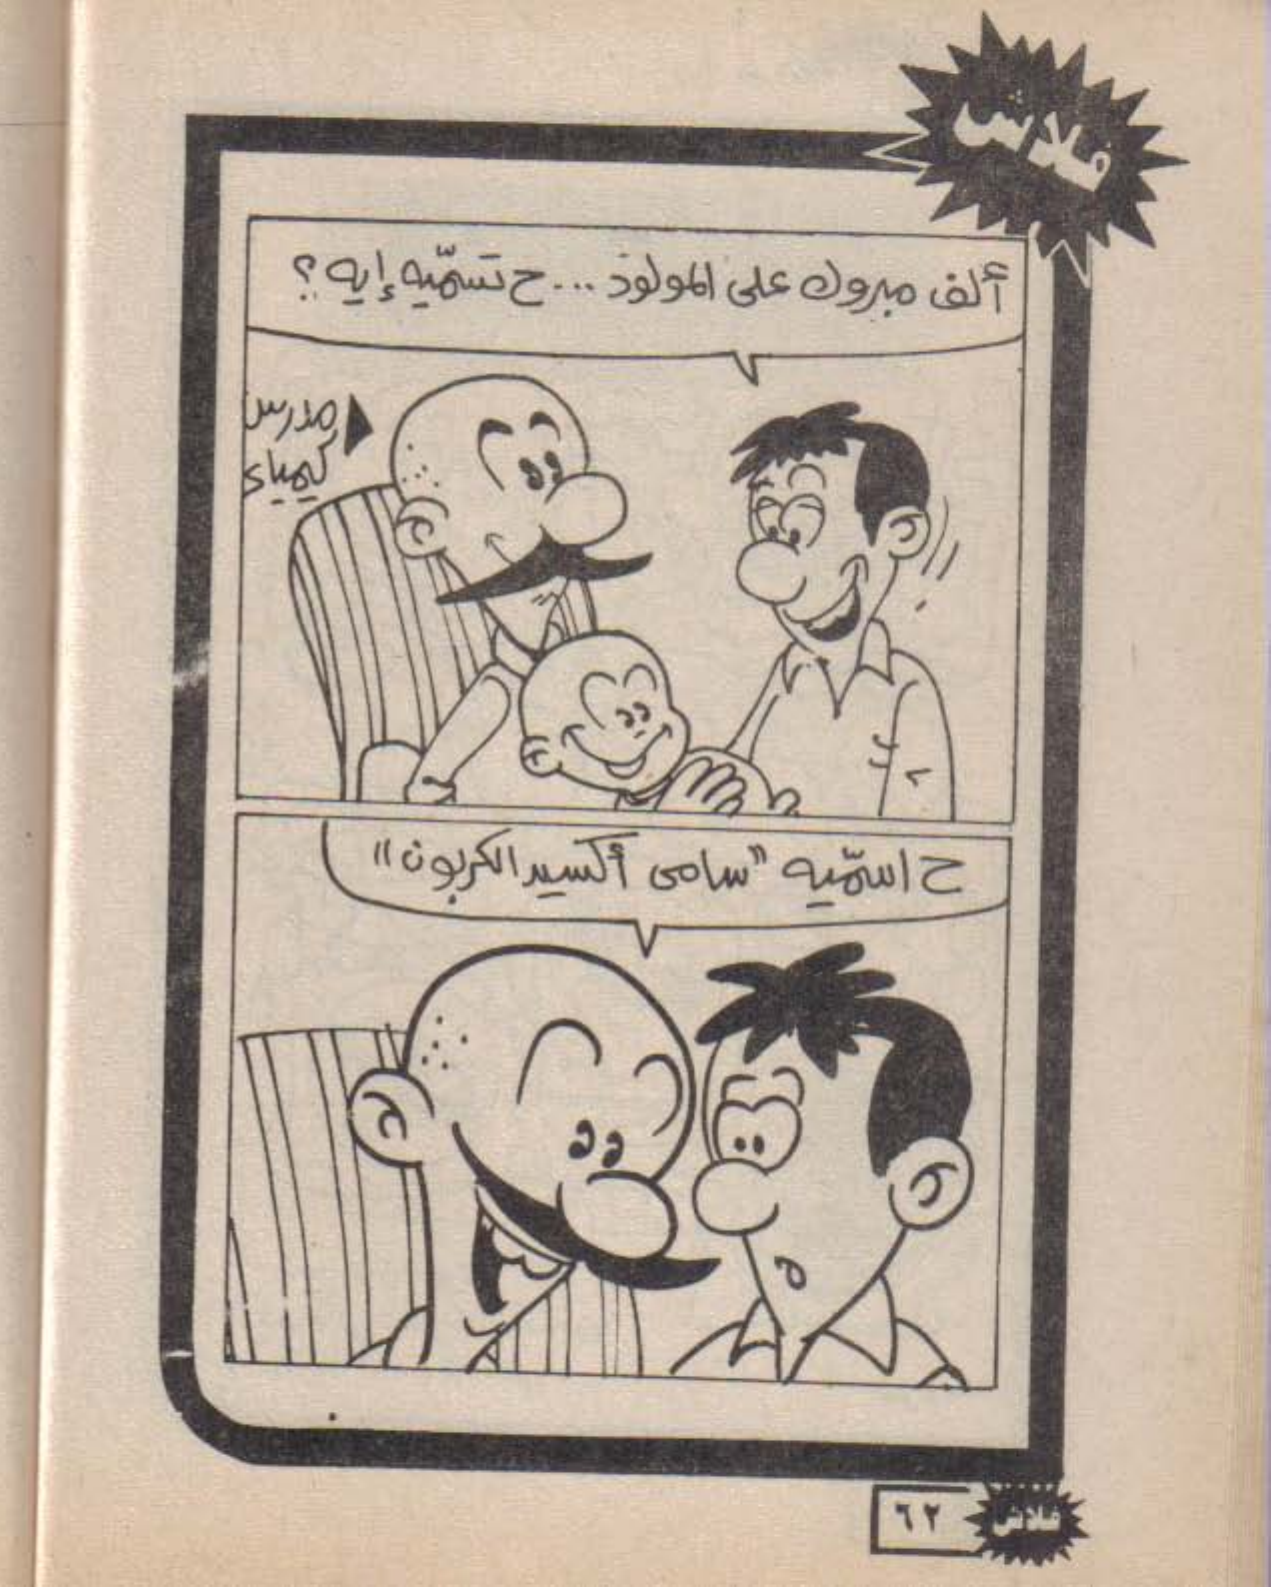 فلاش
ألف مبروك على المولود ... ح تسمّيه إيه ؟
مدرس
كيمياء
ح اسمّيه "سامى أكسيد الكربون"
٦٢
فلاش